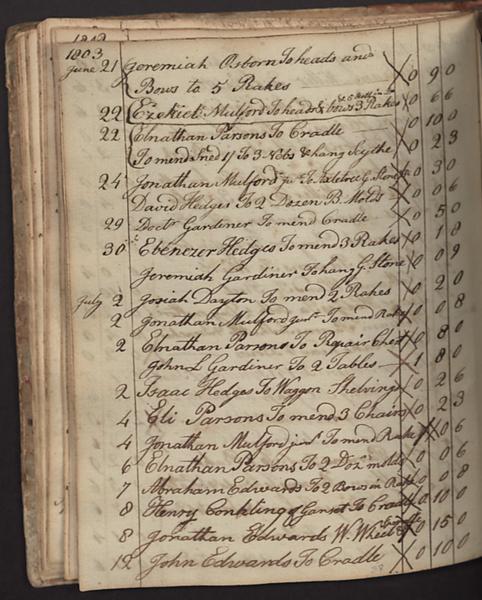 1803
June 21 Jeremiah Osborn To heads and
Bows to 5 Rakes 0 9 0
22 Ezekiel Mulford To heads & bows 3 Rakes 0 6 6
22 Elnathan Parsons To Cradle 0 10 0
To mend Sned 1/ To 3 Nebs & hang Sythe 0 2 3
24 Jonathan Mulford jur To G. Stone 0 3 0
David Hedges To 2 Dozen B. Molds 0 0 6
29 Doctr Gardiner To mend Cradle 0 5 0
30 Ebenezer Hedges To mend 3 Rakes 0 1 8
Jeremiah Gardiner To hang G. Stone 0 0 9
July 2 Josiah Dayton To mend 2 Rakes 0 2 0
2 Jonathan Mulford junr To mend Rake 0 0 8
2 Elnathan Parsons To Repair Chest 0 8 0
John L Gardiner To 2 Tables 1 8 0
2 Isaac Hedges To Waggon Shelvings 0 2 6
4 Eli Parsons To mend 3 Chairs 0 2 3
4 Jonathan Mulford junr To mend Rake 0 0 6
6 Elnathan Parsons To 2 Dozn molds 0 0 6
7 Abraham Edwards To 2 Bows in Rake 0 0 8
8 Henry Conkling of Gansot To Cradle 0 10 0
8 Jonathan Edwards W. Wheel 0 15 0
12 John Edwards To Cradle 0 10 0